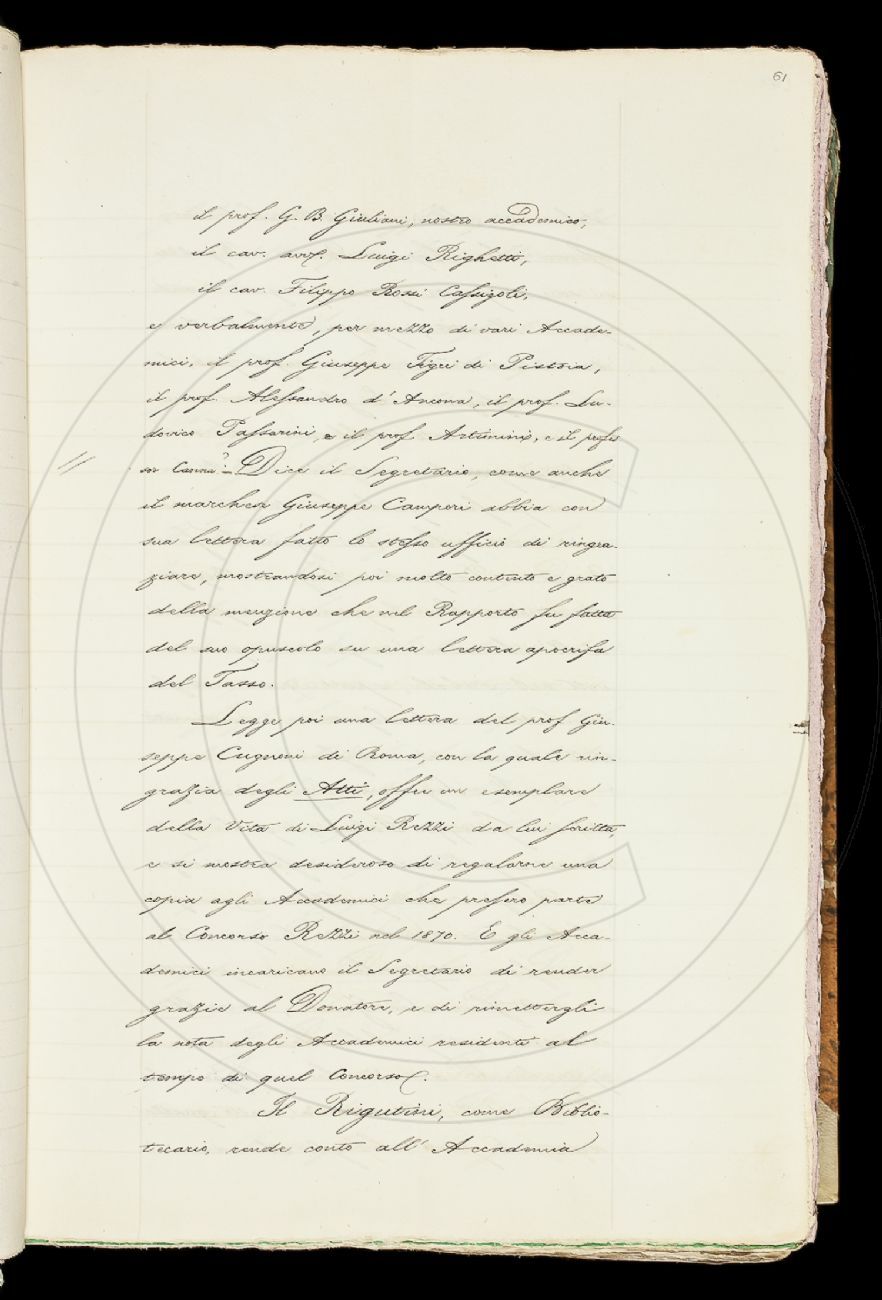 61
il prof. G. B. Giuliani, nostro accademico;
il cav. avv. Luigi Righetti,
il cav. Filippo Rossi Cassigoli,
e verbalmente, per mezzo di vari Accade-
mici, il prof. Giuseppe Tigri di Pistoia,
il prof. Alessandro d'Ancona, il prof. Lu-
dovico Passarini, e il prof. e il profes
sor Canna. – Dice il Segretario, come anche
il marchese Giuseppe Campori abbia con
sua lettera fatto lo stesso ufficio di ringra-
ziare, mostrandosi poi molto contento e grato
della menzione che nel Rapporto fu fatta
del suo opuscolo su una lettera apocrifa
del Tasso.
Legge poi una lettera del prof Giu-
seppe Cugnoni di Roma, con la quale rin-
grazia degli Atti, offre un esemplare
della Vita di Luigi Rezzi da lui scritta,
e si mostra desideroso di regalarne una
copia agli Accademici che presero parte
al Concorso Rezzi nel 1870. E gli Acca-
demici incaricano il Segretario di render
grazie al Donatore, e di rimettergli
la nota degli Accademici residenti al
tempo di quel Concorso.
Il Rigutini, come Biblio-
tecario, rende conto all'Accademia